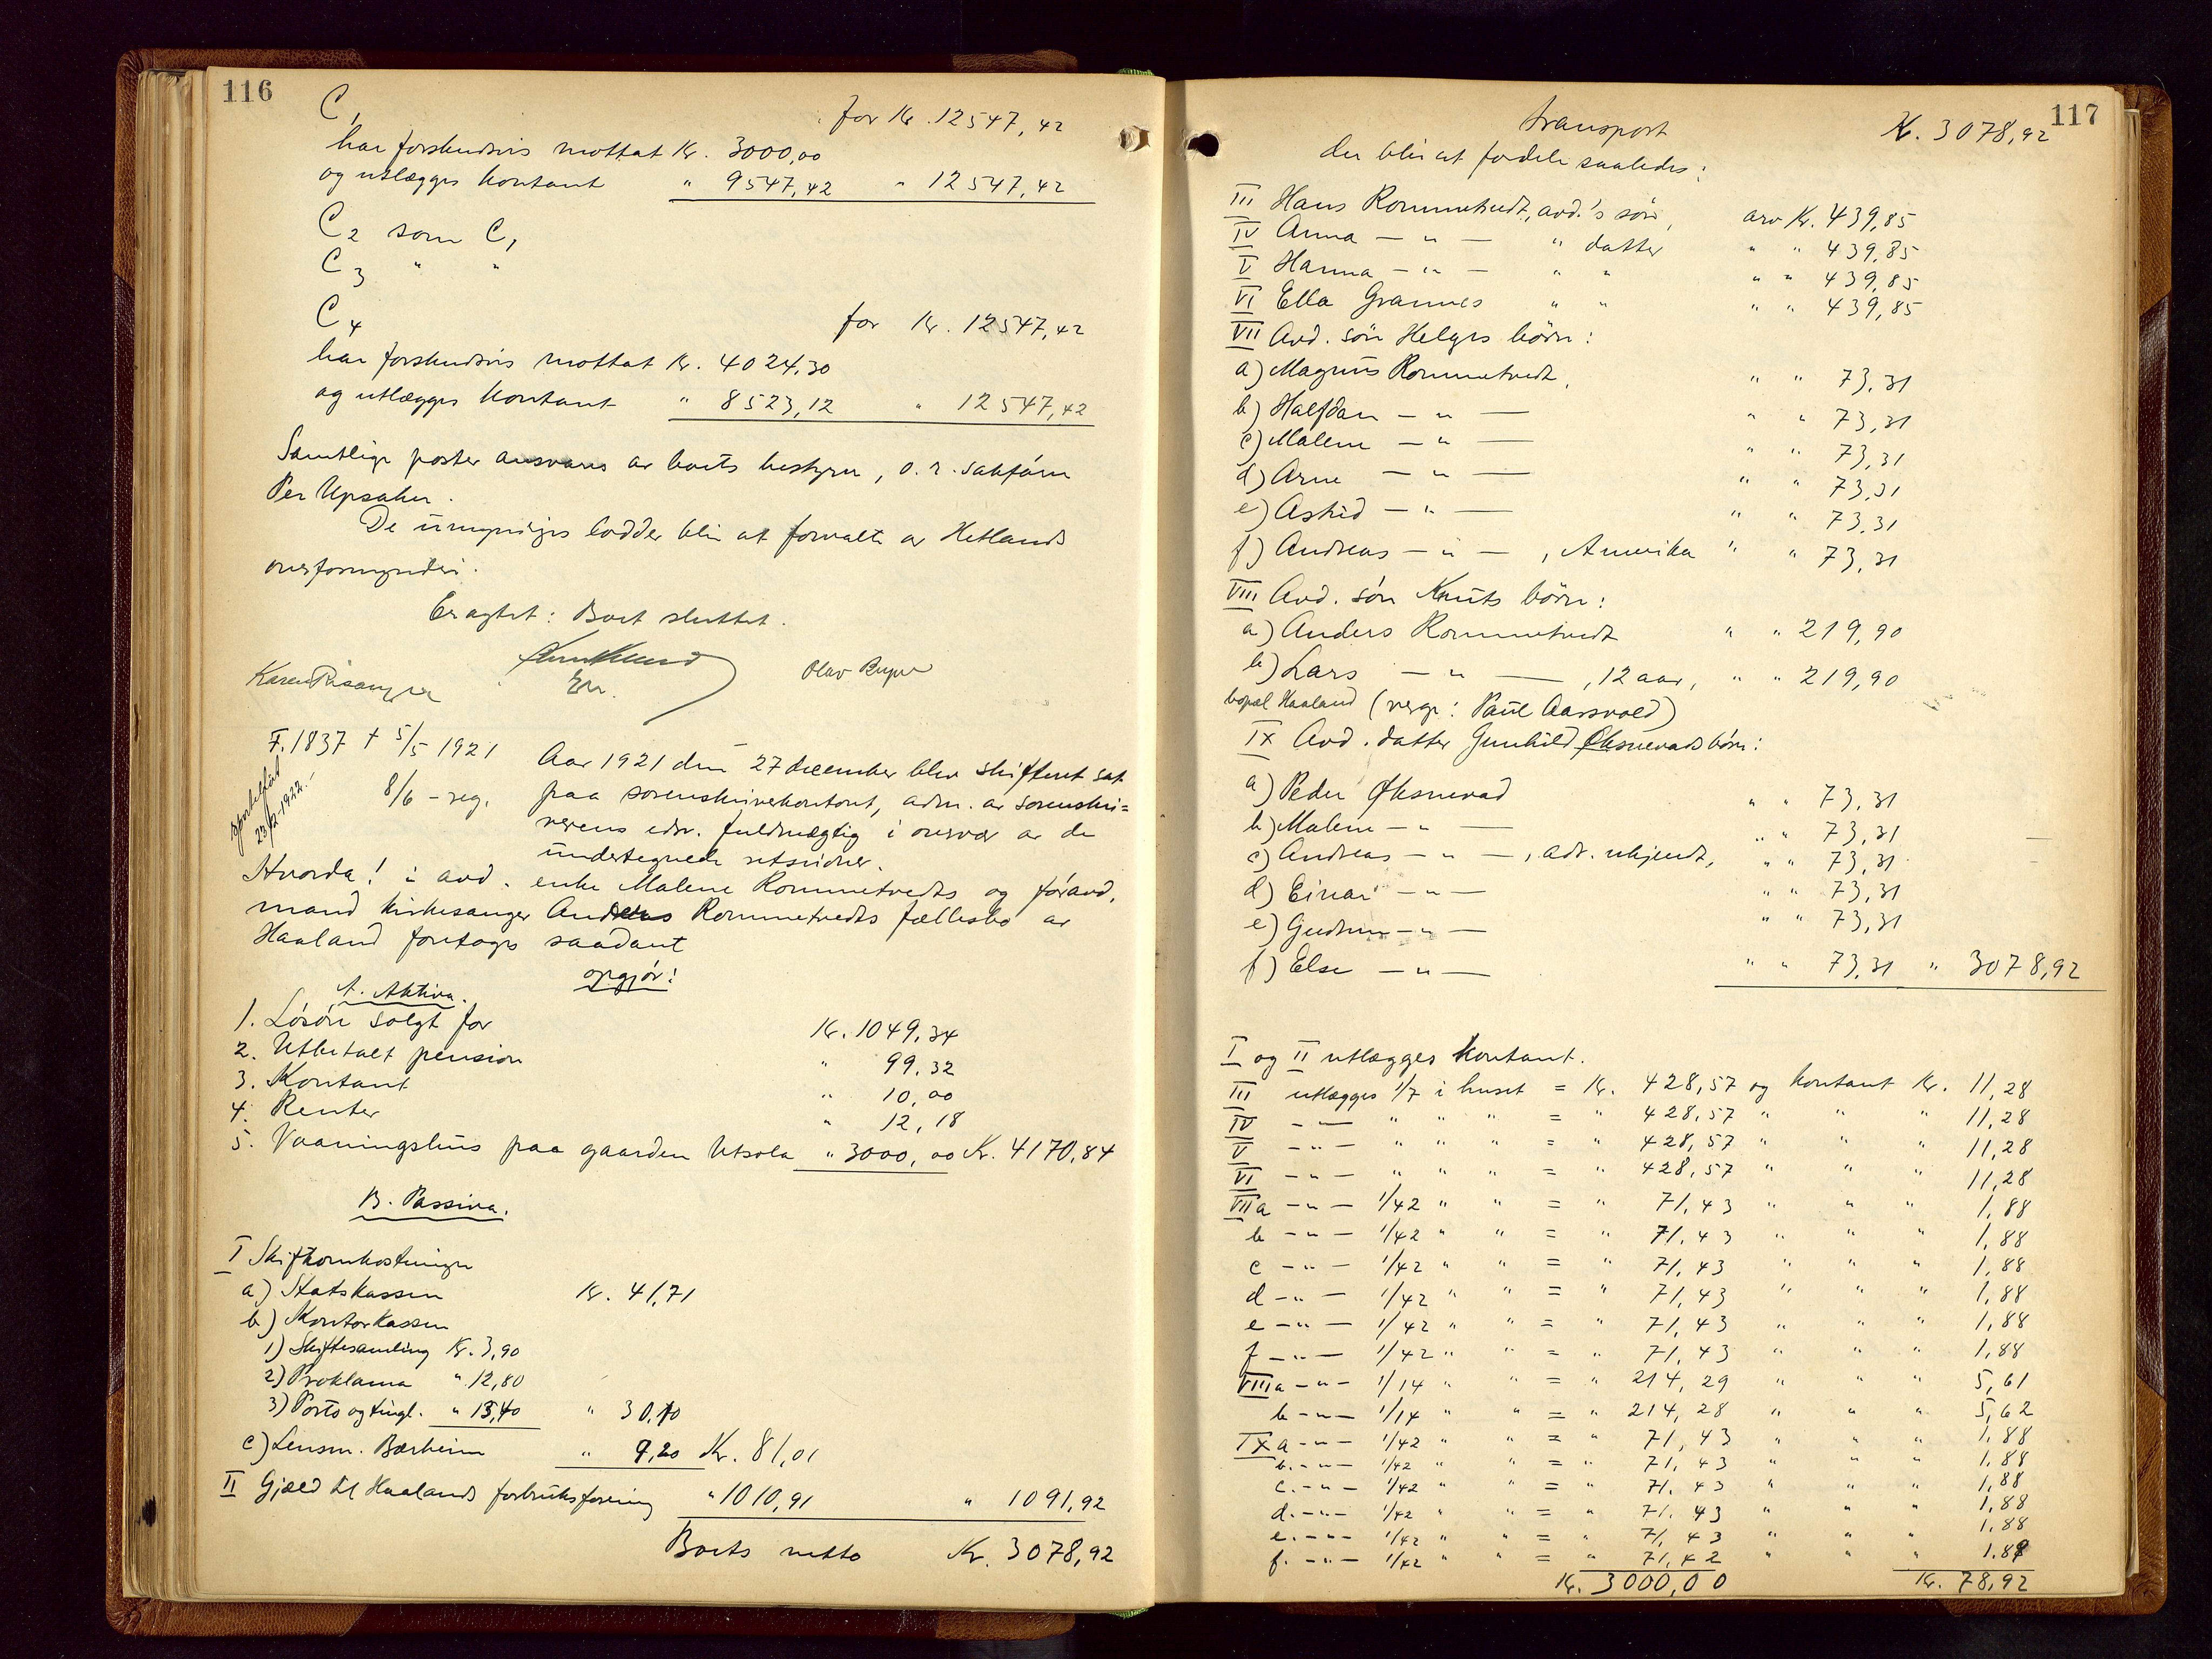 116
C1
for Kr. 12547,42
har forskudsvis mottat Kr. 3000,00
og utlægges kontant " 9547,42 " 12547,42
C2 som C1
C3 " "
C4
for Kr. 12547,42
har forskudsvis mottat Kr. 4024,30
og utlægges kontant " 8523,12 " 12547,42
Samtlige poster ansvares av boets bestyrer, o.r. sakfører
Per Upsaker.
De umyndiges lodder blir at forvalte av Hetlands
overformynderi.
Eragtet: Boet sluttet.
Olav
F. 1837 † 5/5 1921
8/6 - reg.
23/2 1922.
Aar 1921 den 27 december blev skifteret sat
paa sorenskriverkontoret, adm. av sorenskri=
verens edsv. fuldmægtig i overvær av de
undertegnede retsvidner.
Hvorda! i avd. enke Malene Rommetvedts og føravd.
mand kirkesanger Anders Rommetvedts fællesbo av
Haaland foretoges saadant
opgjør:
A. Aktiva.
1. Løsøre solgt for Kr. 1049,34
2. Utbetalt pension " 99,32
3. Kontant " 10,00
4. Renter " 12,18
5. Vaaningshus paa gaarden Utsola " 3000,00 Kr. 4170,84
B. Passiva.
I Skifteomkostninger
a) Statskassen Kr. 41,71
b) Kontorkassen
1) Skiftesamling Kr. 3,90
2) Proklama " 12,80
3) Porto og tingl. " 13,40 " 30,10
c) Lensm. Bærheim " 9,20 Kr. 81,01
II Gjæld til Haalands forbruksforening " 1010,91 " 1091,92
Boets netto Kr. 3078,92
117
transport Kr. 3078,92
der blir at fordele saaledes:
III Hans Rommetvedt, avd.'s søn, arv Kr. 439,85
IV Anna — " — " datter " " 439,85
V Hanna — " — " " " " 439,85
VI Ella Grannes " " " " 439,85
VII Avd. søn Helges børn:
a) Magnus Rommetvedt, " " 73,31
b) Halfdan — " — " " 73,31
c) Malene — " — " " 73,31
d) Arne — " — " " 73,31
e) Astrid — " — " " 73,31
f) Andreas — " — , Amerika " " 73,31
VIII Avd. søn Knuts børn:
a) Anders Rommetvedt " " 219,90
b) Lars — " — , 12 aar, " " 219,90
bopæl Haaland (verge: Paul Aarsvold)
IX Avd. datter Gunhild Øksnevads børn:
a) Peder Øksnevad " " 73,31
b) Malene — " — " " 73,31
c) Andreas — " — , adr. ukjendt, " " 73,31
d) Einar — " — " " 73,31
e) Gudrun — " — " " 73,31
f) Else — " — " " 73,31 " 3078,92
I og II utlægges kontant.
III utlægges 1/7 i huset = Kr. 428,57 og kontant Kr. 11,28
IV — " — " " " = " 428,57 " " " 11,28
V — " — " " " = " 428,57 " " " 11,28
VI — " — " " " = " 428,57 " " " 11,28
VIIa — " — 1/42 " " = " 71,43 " " " 1,88
b — " — 1/42 " " = " 71,43 " " " 1,88
c — " — 1/42 " " = " 71,43 " " " 1,88
d — " — 1/42 " " = " 71,43 " " " 1,88
e — " — 1/42 " " = " 71,43 " " " 1,88
f — " — 1/42 " " = " 71,43 " " " 1,88
VIIIa — " — 1/14 " " = " 214,29 " " " 5,61
b — " — 1/14 " " = " 214,28 " " " 5,62
IXa — " — 1/42 " " = " 71,43 " " " 1,88
b. — " — 1/42 " " = " 71,43 " " " 1,88
c. — " — 1/42 " " = " 71,43 " " " 1,88
d. — " — 1/42 " " = " 71,43 " " " 1,88
e. — " — 1/42 " " = " 71,43 " " " 1,88
f. — " — 1/42 " " = " 71,42 " " " 1.89
Kr. 3000,00 Kr. 78,92